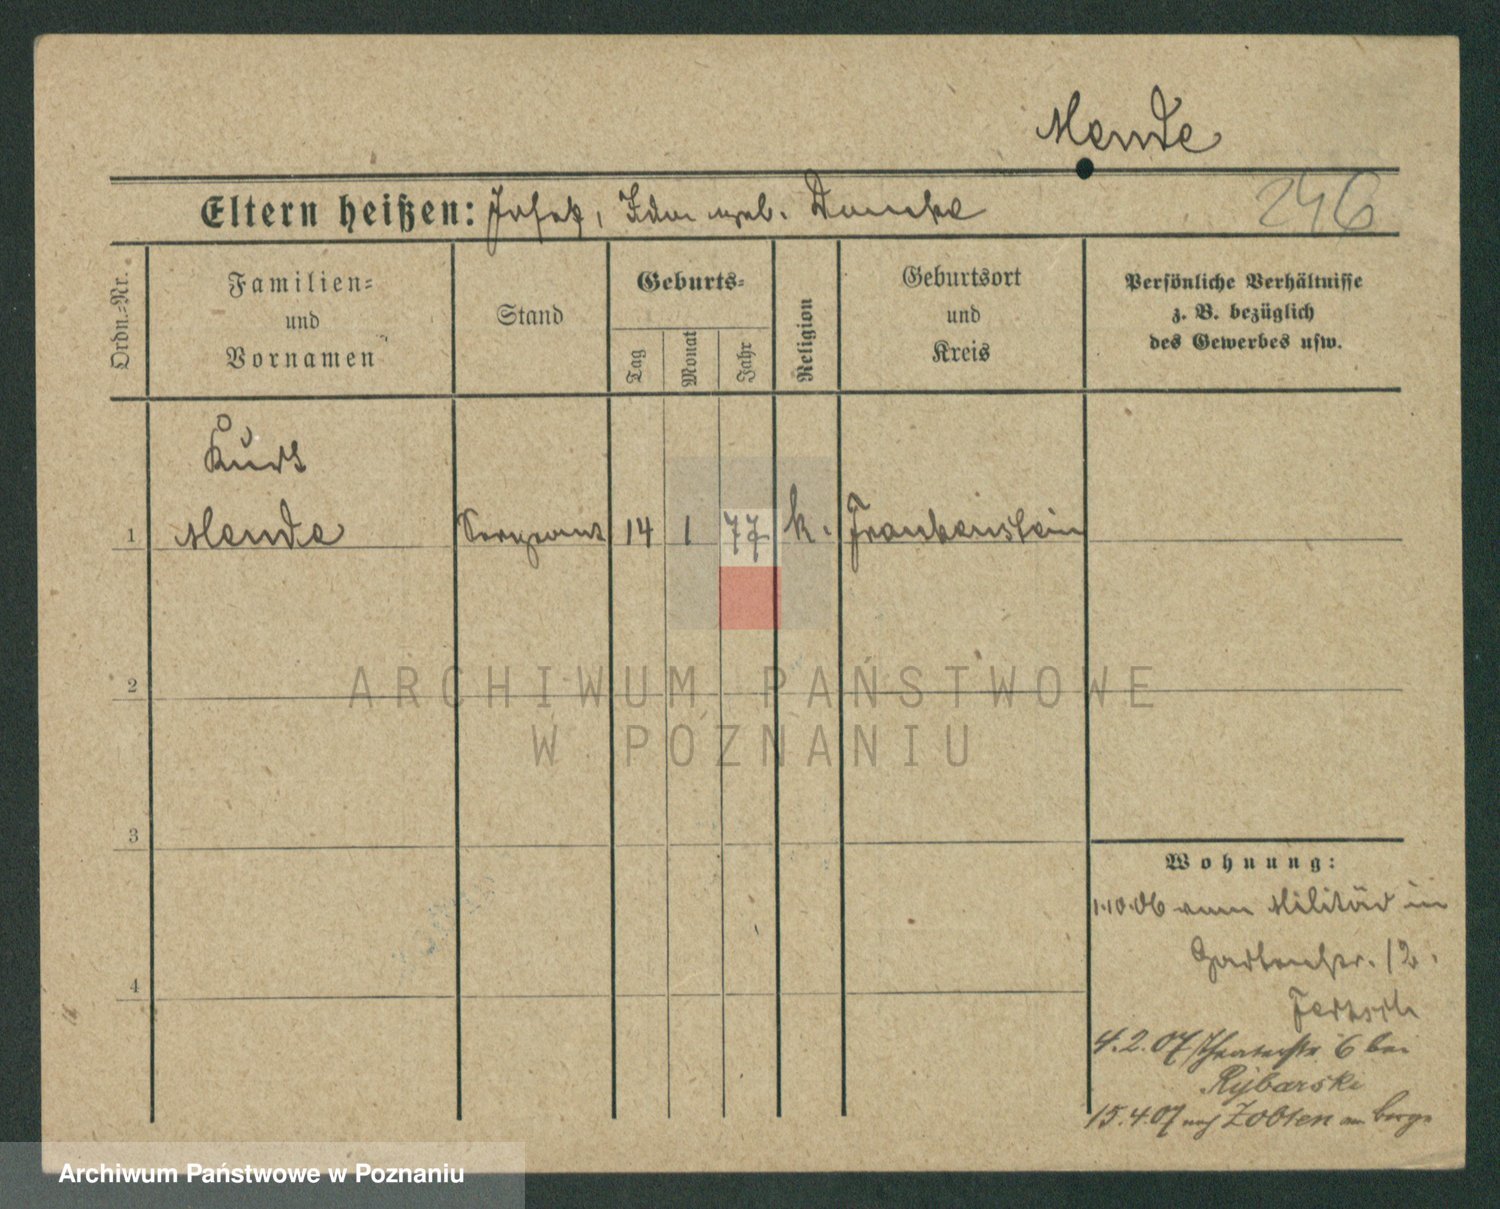 Mende
Eltern heißen: Josef, Ida geb.
246
Ordn.-Nr.
Familien-
und
Vornamen
Stand
Geburts-
Tag
Monat
Jahr
Religion
Geburtsort
und
Kreis
Persönliche Verhältnisse
z. B. bezüglich
des Gewerbes usw.
Kurt
1 Mende Sergeant 14 1 77 k. Frankenstein
2
ARCHIWUM PAŃSTWOWE
W POZNANIU
3
4
Wohnung:
1.10.06 vom Militär in
Gartenstr. 12.
4.2.07 Theaterstr 6 bei
Rybarski
15.4.07 nach Zobten am Berge
Archiwum Państwowe w Poznaniu